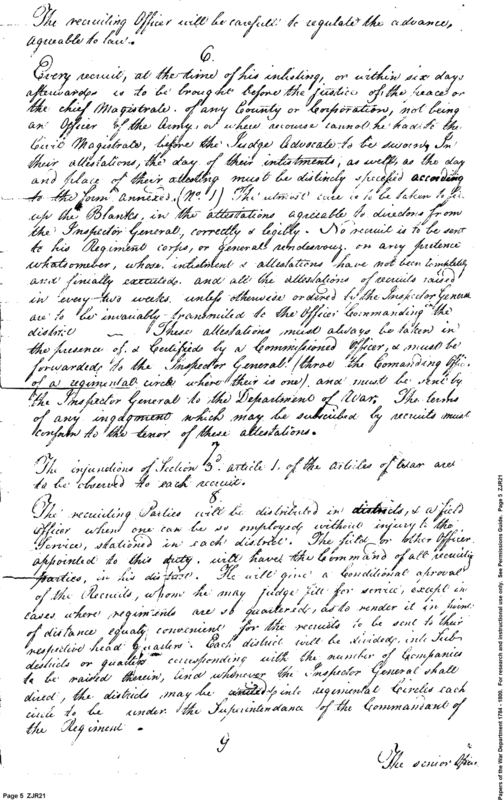 The recruiting Officer will be carefull to regulate the advance,
agreeable to law.
6.
Every recruit, at the time of his inlisting, or within six days
afterwards is to be brought before the justice of the peace or
the chief Magistrate. of any County or Corporation, not being
an Officer of the Army, or where recourse cannot be had to the
Civil Magistrate, before the Judge Advocate to be sworn, In
their attestations, the day of their inlistments, as well, as the day
and place of their attesting must be distincly specified according
to the form annexed. (No. 1) The utmost care is to be taken to fill
up the Blanks, in the attestations agreeable to directons from
the Inspector General, correctly & legibly. No recruit is to be sent
to his Regiment corps, or general rendevouz. on any pretence
whatsomever, whose inlistment & attestations have not been completely
and finially executed. and all the attestations of recruits raised
in every two weeks unless otherwise ordered by the Inspector General
are to be invariably transmited to the Officer Commanding the
district These attestations must always be taken in
the presence of. & Certified by a Commissioned Officer, & must be
forwarded to the Inspector General. (throe the Comanding Offic.
of a regimental circle where their is one). and must be sent by
the Inspector General to the Department of War. The terms
of any ingagment which may be subscribed by recruits must
conform to the tenor of these attestations.
7
The injunctions of Section 3d. article 1. of the articles of war are
to be observed to each recruit.
8.
The recruiting Parties will be distributed in districts, & a field
Officer when one can be so employed, without injury to the
Service, stationed in each district. The field or other Officer
appointed to this duty. will have the Command of all recruiting
parties, in his district. He will give a Conditional aproval
of the Recruits, whom he may judge fitt for service, except in
cases where regiments are so quartered, as to render it in point
of distance equaly convenient for the recruits to be sent to their
respective head Quarters. Each district will be divided, into Sub-
districts or quarters corrisponding with the number of Companies
to be raised therein, and whenever the Inspector General shall
direct, the districts may be into regimental Circles each
circle to be under the Superintendance of the Commandant of
the Regiment.
9
The senior Officer
Page 5 ZJR21
Papers of the War Department 1784 - 1800. For research and instructional use only. See Permissions Guide. Page 5 ZJR21